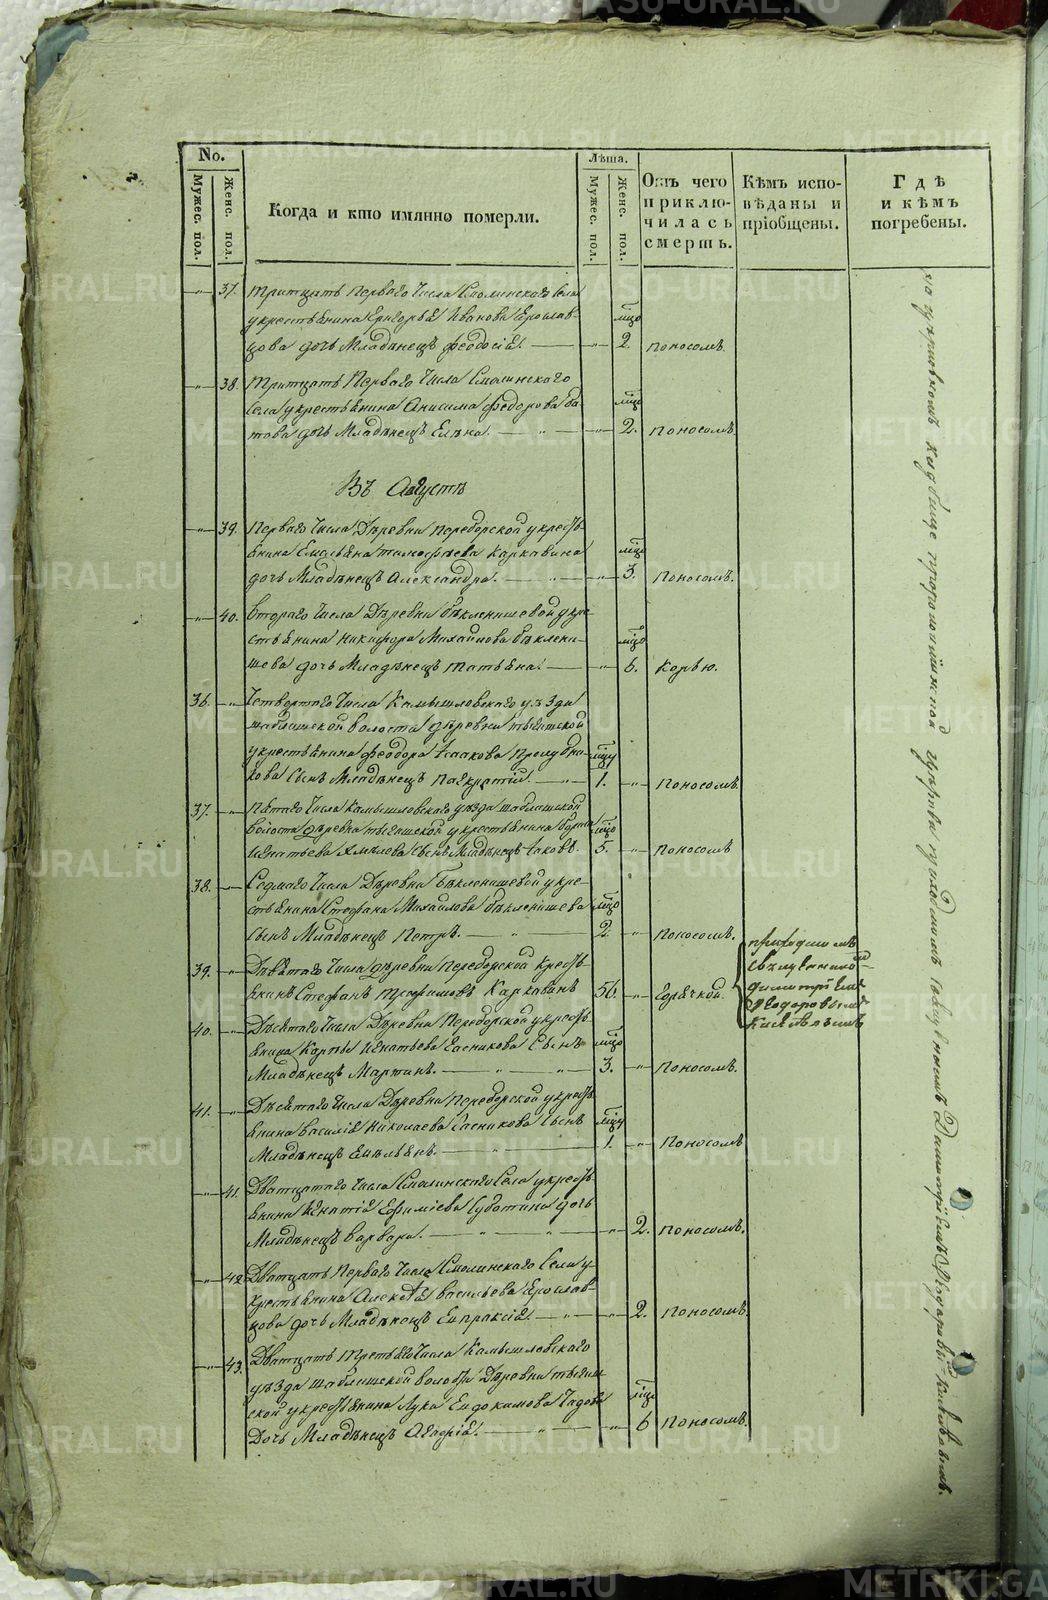 No.
Мужес. пол.
Женс. пол.
Когда и кто имянно померли.
Лѣта.
Мужес. пол.
Женс. пол.
Отъ чего
приклю-
чилась
смерть.
Кѣмъ испо-
вѣданы и
пріобщены.
Гдѣ
и кѣмъ
погребены.
37. Тритцать Перваго Числа Смолинскаго Села
у крестьянина Григорья Иванова Ярослав-
цова дочь Младѣнецъ Феодосія. мцо 2. поносомъ.
38. Тритцать Перваго Числа Смолинскаго
Села у крестьянина Анисима Федорова Ба-
това дочь Младѣнецъ Елена. мцо 2. поносомъ
Въ Августѣ
39. Перваго Числа Дѣревни Переборской у кресть-
янина Емельяна Тимофѣева Каркавина
дочь Младѣнецъ Александра. мцо 3. поносомъ.
40. Втораго Числа Дѣревни Бѣкленищевой у кре-
стьянина Никифора Михайлова Бѣклени-
щева дочь Младѣнецъ Татьяна. мцо 6. Корью.
36. Четвертаго Числа Камышловскаго уѣзда
волости дѣревни
у крестьянина Феодора Исакова Пролубщи-
кова Сынъ Младѣнецъ Панкратій. мцу 1. поносомъ.
37. Пятаго Числа Камышловскаго уѣзда
волости дѣревни у крестьянина
Игнатьева Сынъ Младѣнецъ Іаковъ. мцо 5. поносомъ
38. Седмаго Числа Дѣревни Бѣкленищевой у кре-
стьянина Стефана Михайлова Бѣкленищева
Сынъ Младѣнецъ Петръ. мцо 2. поносомъ.
39. Девятаго Числа дѣревни Переборской кресть-
янинъ Стефанъ Трофимовъ Каркавинъ 56. Горячкой.
приходскимъ
священникомъ
Димитріемъ
Федоровымъ
Киселевымъ
40. Дѣсятаго Числа Дѣревни Переборской у кресть-
янина Карпа Игнатьева Гасникова Сынъ
Младѣнецъ Мартинъ. мцо 3. поносомъ.
41. Дѣсятаго Числа Дѣревни Переборской у кресть-
янина Василія Николаева Гасникова Сынъ
Младѣнецъ Емельянъ. мцу 1. поносомъ
41. Дватцатаго Числа Смолинскаго Села у кресть-
янина Игнатія Ефиміева Субботина дочь
Младѣнецъ Варвара. 2. поносомъ.
42. Дватцать Перваго Числа Смолинскаго Села у
крестьянина Алексѣя Васильева Ярослав-
цова дочь Младѣнецъ Евпраксія. 2. поносомъ.
43. Дватцать Третьяго Числа Камышловскаго
уѣзда волости Дѣревни
у крестьянина Луки Евдокимова
Дочь Младѣнецъ Агафія. мцо 6 поносомъ.
На церковномъ кладбище приходскимъ священникомъ Димитріемъ Федоровымъ Киселевымъ.
METRIKI.GASO-URAL.RU